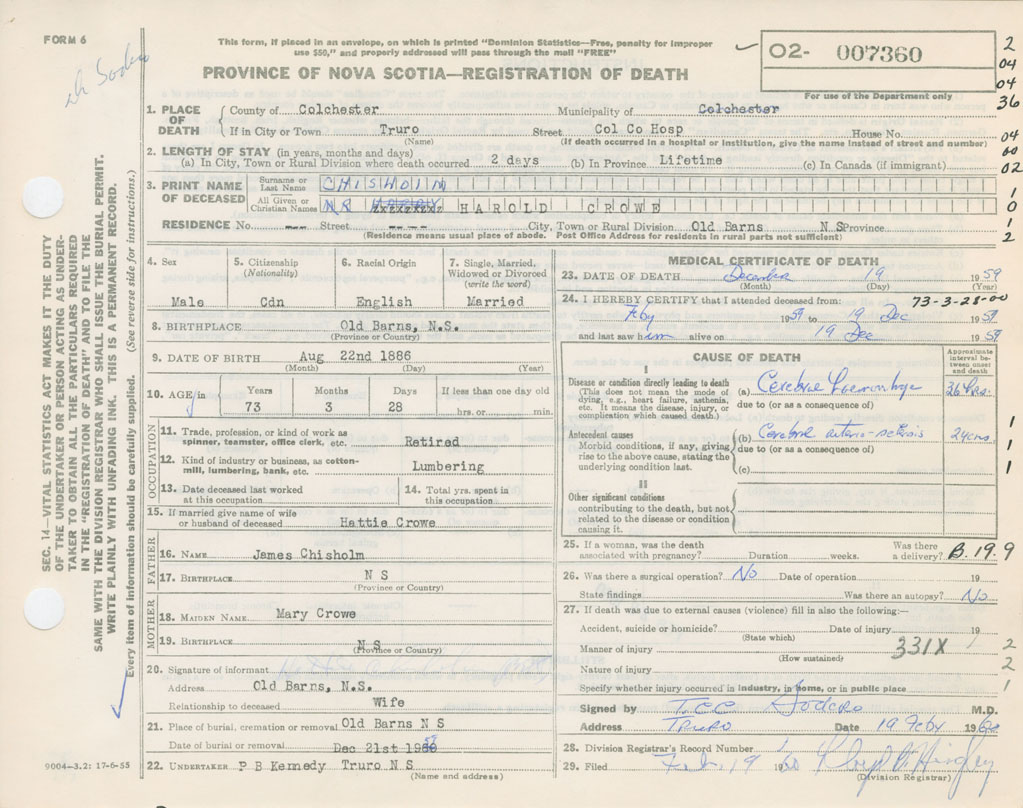 FORM 6
This form, if placed in an envelope, on which is printed "Dominion Statistics—Free, penalty for improper
use $50," and properly addressed will pass through the mail "FREE"
PROVINCE OF NOVA SCOTIA—REGISTRATION OF DEATH
02- 007360
For use of the Department only
2
04
04
36
04
00
02
1
0
1
2
SEC. 14—VITAL STATISTICS ACT MAKES IT THE DUTY
OF THE UNDERTAKER OR PERSON ACTING AS UNDER-
TAKER TO OBTAIN ALL THE PARTICULARS REQUIRED
IN THE "REGISTRATION OF DEATH" AND TO FILE THE
SAME WITH THE DIVISION REGISTRAR WHO SHALL ISSUE THE BURIAL PERMIT.
WRITE PLAINLY WITH UNFADING INK. THIS IS A PERMANENT RECORD.
Every item of information should be carefully supplied. (See reverse side for instructions.)
1. PLACE OF DEATH County of Colchester Municipality of Colchester
If in City or Town Truro Street Col Co Hosp House No.
(Name) (If death occurred in a hospital or institution, give the name instead of street and number)
2. LENGTH OF STAY (in years, months and days)
(a) In City, Town or Rural Division where death occurred 2 days (b) In Province Lifetime (c) In Canada (if immigrant)
3. PRINT NAME OF DECEASED Surname or Last Name CHISHOLM
All Given or Christian Names HAROLD CROWE
RESIDENCE No. --- Street --- City, Town or Rural Division Old Barns N S Province
(Residence means usual place of abode. Post Office Address for residents in rural parts not sufficient)
4. Sex 5. Citizenship (Nationality) 6. Racial Origin 7. Single, Married, Widowed or Divorced (write the word)
Male Cdn English Married
8. BIRTHPLACE Old Barns, N.S.
(Province or Country)
9. DATE OF BIRTH Aug 22nd 1886
(Month) (Day) (Year)
10. AGE in Years Months Days If less than one day old
73 3 28 hrs. or min.
OCCUPATION
11. Trade, profession, or kind of work as
spinner, teamster, office clerk, etc. Retired
12. Kind of industry or business, as cotten-
mill, lumbering, bank, etc. Lumbering
13. Date deceased last worked at this occupation 14. Total yrs. spent in this occupation
15. If married give name of wife
or husband of deceased Hattie Crowe
FATHER
16. NAME James Chisholm
17. BIRTHPLACE N S
(Province or Country)
MOTHER
18. MAIDEN NAME Mary Crowe
19. BIRTHPLACE N S
(Province or Country)
20. Signature of informant
Address Old Barns, N.S.
Relationship to deceased Wife
21. Place of burial, cremation or removal Old Barns N S
Date of burial or removal Dec 21st 1959
22. UNDERTAKER P B Kennedy Truro N S
(Name and address)
9004—3.2: 17-6-55
MEDICAL CERTIFICATE OF DEATH
23. DATE OF DEATH December 19 1959
(Month) (Day) (Year)
24. I HEREBY CERTIFY that I attended deceased from: 73-3-28-00
Feby 1959 to 19 Dec 1959
and last saw him alive on 19 Dec 1959
CAUSE OF DEATH
Approximate interval between onset and death
I
Disease or condition directly leading to death
(This does not mean the mode of
dying, e.g., heart failure, asthenia,
etc. It means the disease, injury, or
complication which caused death.)
(a) Cerebral haemorrhage 36 hrs.
due to (or as a consequence of)
Antecedent causes
Morbid conditions, if any, giving
rise to the above cause, stating the
underlying condition last.
(b) Cerebral arterio-sclerosis
due to (or as a consequence of)
(c)
1
1
1
II
Other significant conditions
contributing to the death, but not
related to the disease or condition
causing it.
25. If a woman, was the death
associated with pregnancy? Duration weeks. Was there a delivery?
B. 19. 9
26. Was there a surgical operation? No Date of operation 19
State findings Was there an autopsy? No
27. If death was due to external causes (violence) fill in also the following:—
Accident, suicide or homicide? Date of injury 19
(State which)
Manner of injury 331X 2
(How sustained)
Nature of injury 2
Specify whether injury occurred in industry, in home, or in public place 1
Signed by Sodero M.D.
Address Truro Date 19 Feby 1960
28. Division Registrar's Record Number
29. Filed Feb. 19 1960
(Division Registrar)